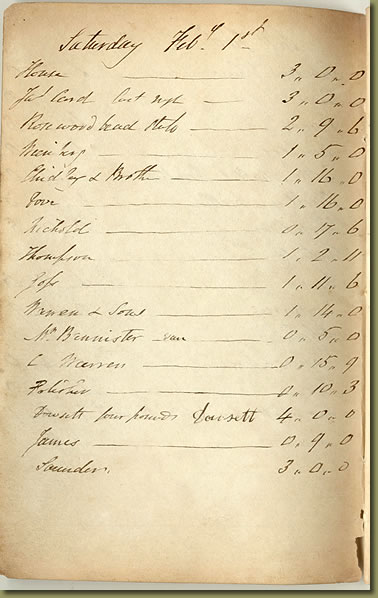 Saturday Feby. 1st
House 3 „ 0 „ 0
3 „ 0 „ 0
Rosewood bead 2 „ 9 „ 6
1 „ 5 „ 0
& Broth 1 „ 16 „ 0
Dove 1 „ 16 „ 0
Nichold 0 „ 17 „ 6
Thompson 1 „ 2 „ 11
Goss 1 „ 11 „ 6
Warren & Sons 1 „ 14 „ 0
Mr. Bannister 0 „ 5 „ 0
C Warren 0 „ 15 „ 9
Polisher 0 „ 10 „ 3
four pounds 4 „ 0 „ 0
James 0 „ 9 „ 0
Saunders 3 „ 0 „ 0